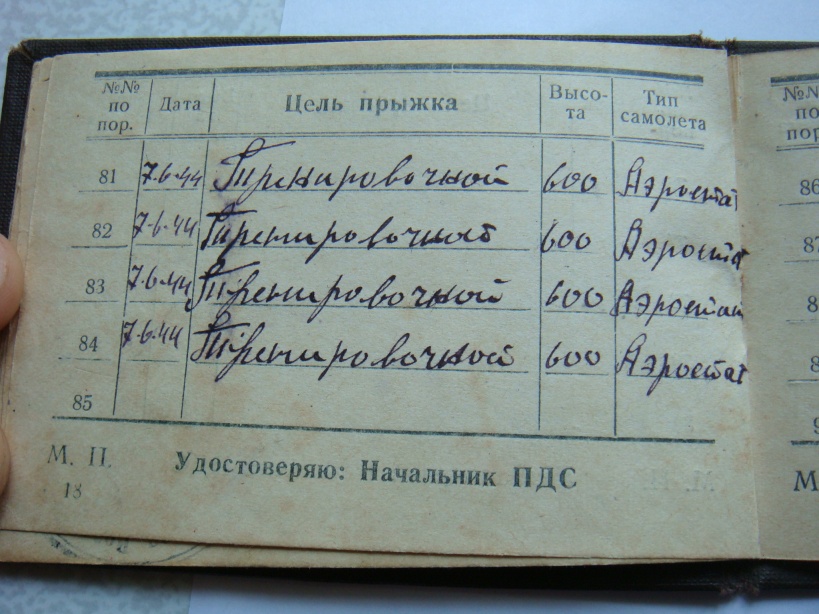 №№ по пор. Дата Цель прыжка Высо-та Тип самолета
81 7.6.44 Тренировочной 600 Аэростат
82 7.6.44 Тренировочной 600 Аэростат
83 7.6.44 Тренировочной 600 Аэростат
84 7.6.44 Тренировочной 600 Аэростат
85
М. П. Удостоверяю: Начальник ПДС
13
№№ по пор.
86
87
М